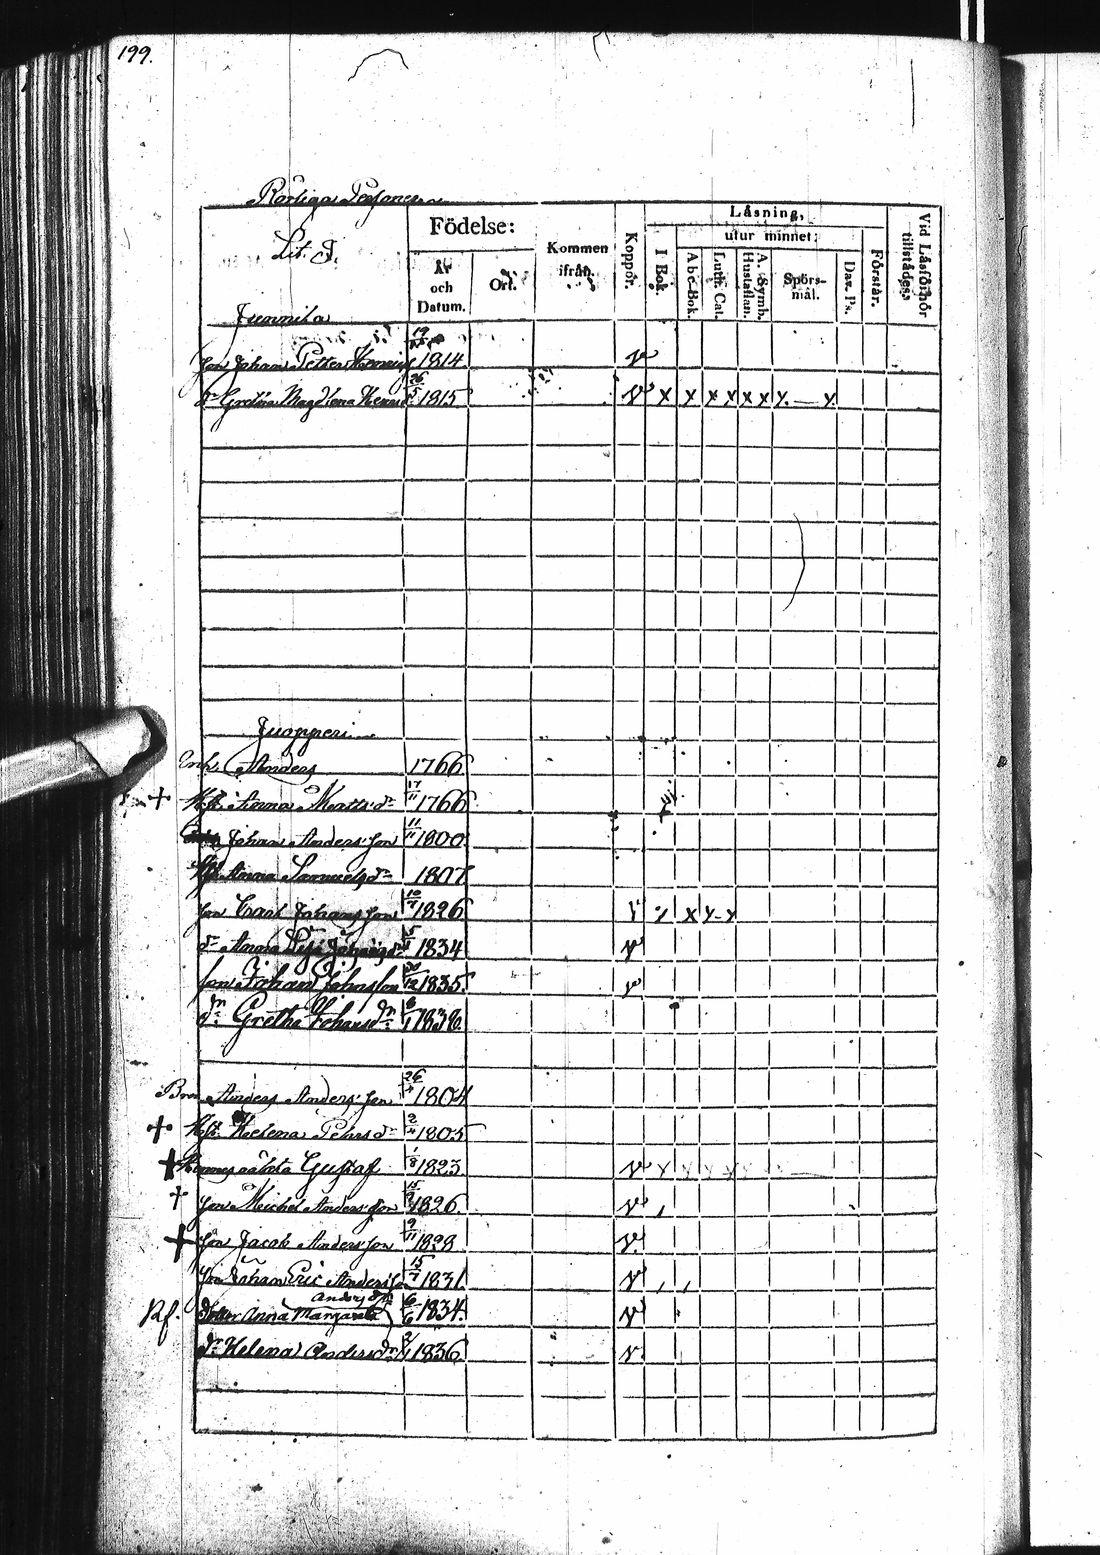 199.
Rörliga Personer
Lit. J.
Födelse:
År och Datum.
Ort.
Kommen ifrån.
Koppor.
Läsning,
I Bok.
utur minnet:
Abc-Bok.
Luth. Cat.
A. Symb. Hustaflan.
Spörs-mål.
Dav. Ps.
Förstår.
Vid Läsförhör tillstädes;
Junnila
Son Johan Petter 19 1814 v
dr Greta Magdlena 26/5 1815 v x x x x x x x — x
Juopperi
Enk. Anders 1766
+ Hst. Anna Matts dr 17/11 1766
Johan Anders son 11/11 1800
Hst Anna Samuels dr 1807
son Carl Johans son 10/7 1826 v x x x - x
dr Anna Lisa Johans dr 1834 v
son Johan Johansson 20/12 1835 v
dr Gretha Johans dr 1838
Bror Anders Anders son 26 1804
+ Hst. Helena Pehrs dr 2/4 1805
+ Hennes oäkta Gustaf 1/8 1823 v x x x x x x
+ son Michel Anders son 1826 v
+ son Jacob Anders son 9/11 1828 v
son Johan Eric Andersson 15/7 1831 v
Rf. Dotter Anna Margareta Anders dr 6/6 1834 v
dr Helena Anders dr 1836 v